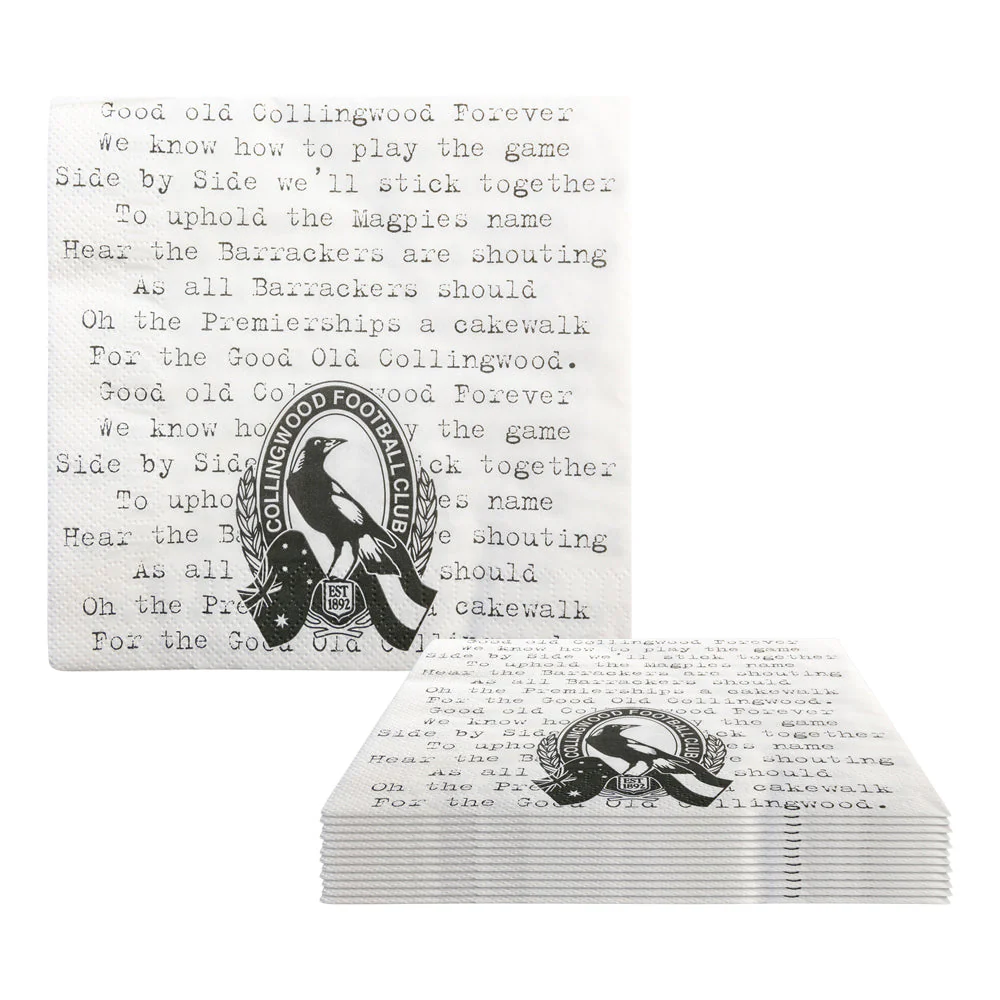 Good old Collingwood Forever
We know how to play the game
Side by Side we'll stick together
To uphold the Magpies name
Hear the Barrackers are shouting
As all Barrackers should
Oh the Premierships a cakewalk
For the Good Old Collingwood.
Good old Co wood Forever
We know ho y the game
Side by Side ick together
To upho es name
Hear the Ba e shouting
As all should
Oh the Pre a cakewalk
For the Good Old Collingwood.
COLLINGWOOD FOOTBALL CLUB
EST
1892
Good old Collingwood Forever
We know how to play the game
Side by Side we'll stick together
To uphold the Magpies name
Hear the Barrackers are shouting
As all Barrackers should
Oh the Premierships a cakewalk
For the Good Old Collingwood.
Good old Co wood Forever
We know ho the game
Side by Sid ck together
To upho es name
Hear the Ba e shouting
As all should
Oh the Pre cakewalk
For the Good Old Collingwood.
COLLINGWOOD FOOTBALL CLUB
EST
1892